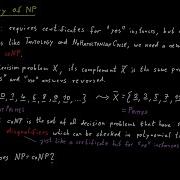 y of NP
requires certificates for "yes" instances, but
like TAUTOLOGY and NOTHAMILTONIANCYCLE, we need a
coNP.
decision problem X, its complement X̄ is the same
and "no" answers reversed.
6, 8, 9, 10, ...} ↔ X̄ = {2, 3, 5, 7,
= PRIMES
coNP is the set of all decision problems that have
disqualifiers which can be checked in polynomial
just like a certificate but for "no" instances
oes NP = coNP?